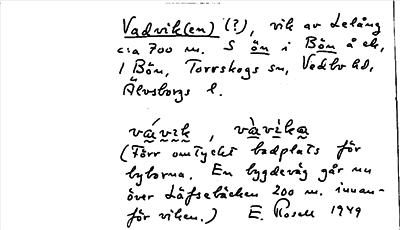 Vadvik(en) (?), vik av Lelång
c:a 700 m. S ön i Bön å ek,
1 Bön, Torrskogs sn, Vedbo hd,
Älvsborgs l.
vá̰vɪk, và̰vìka̰
(Förr omtyckt badplats för
byborna. En bygdeväg går nu
över Läfsebäcken 200 m. innan-
för viken.) E. Rosell 1949